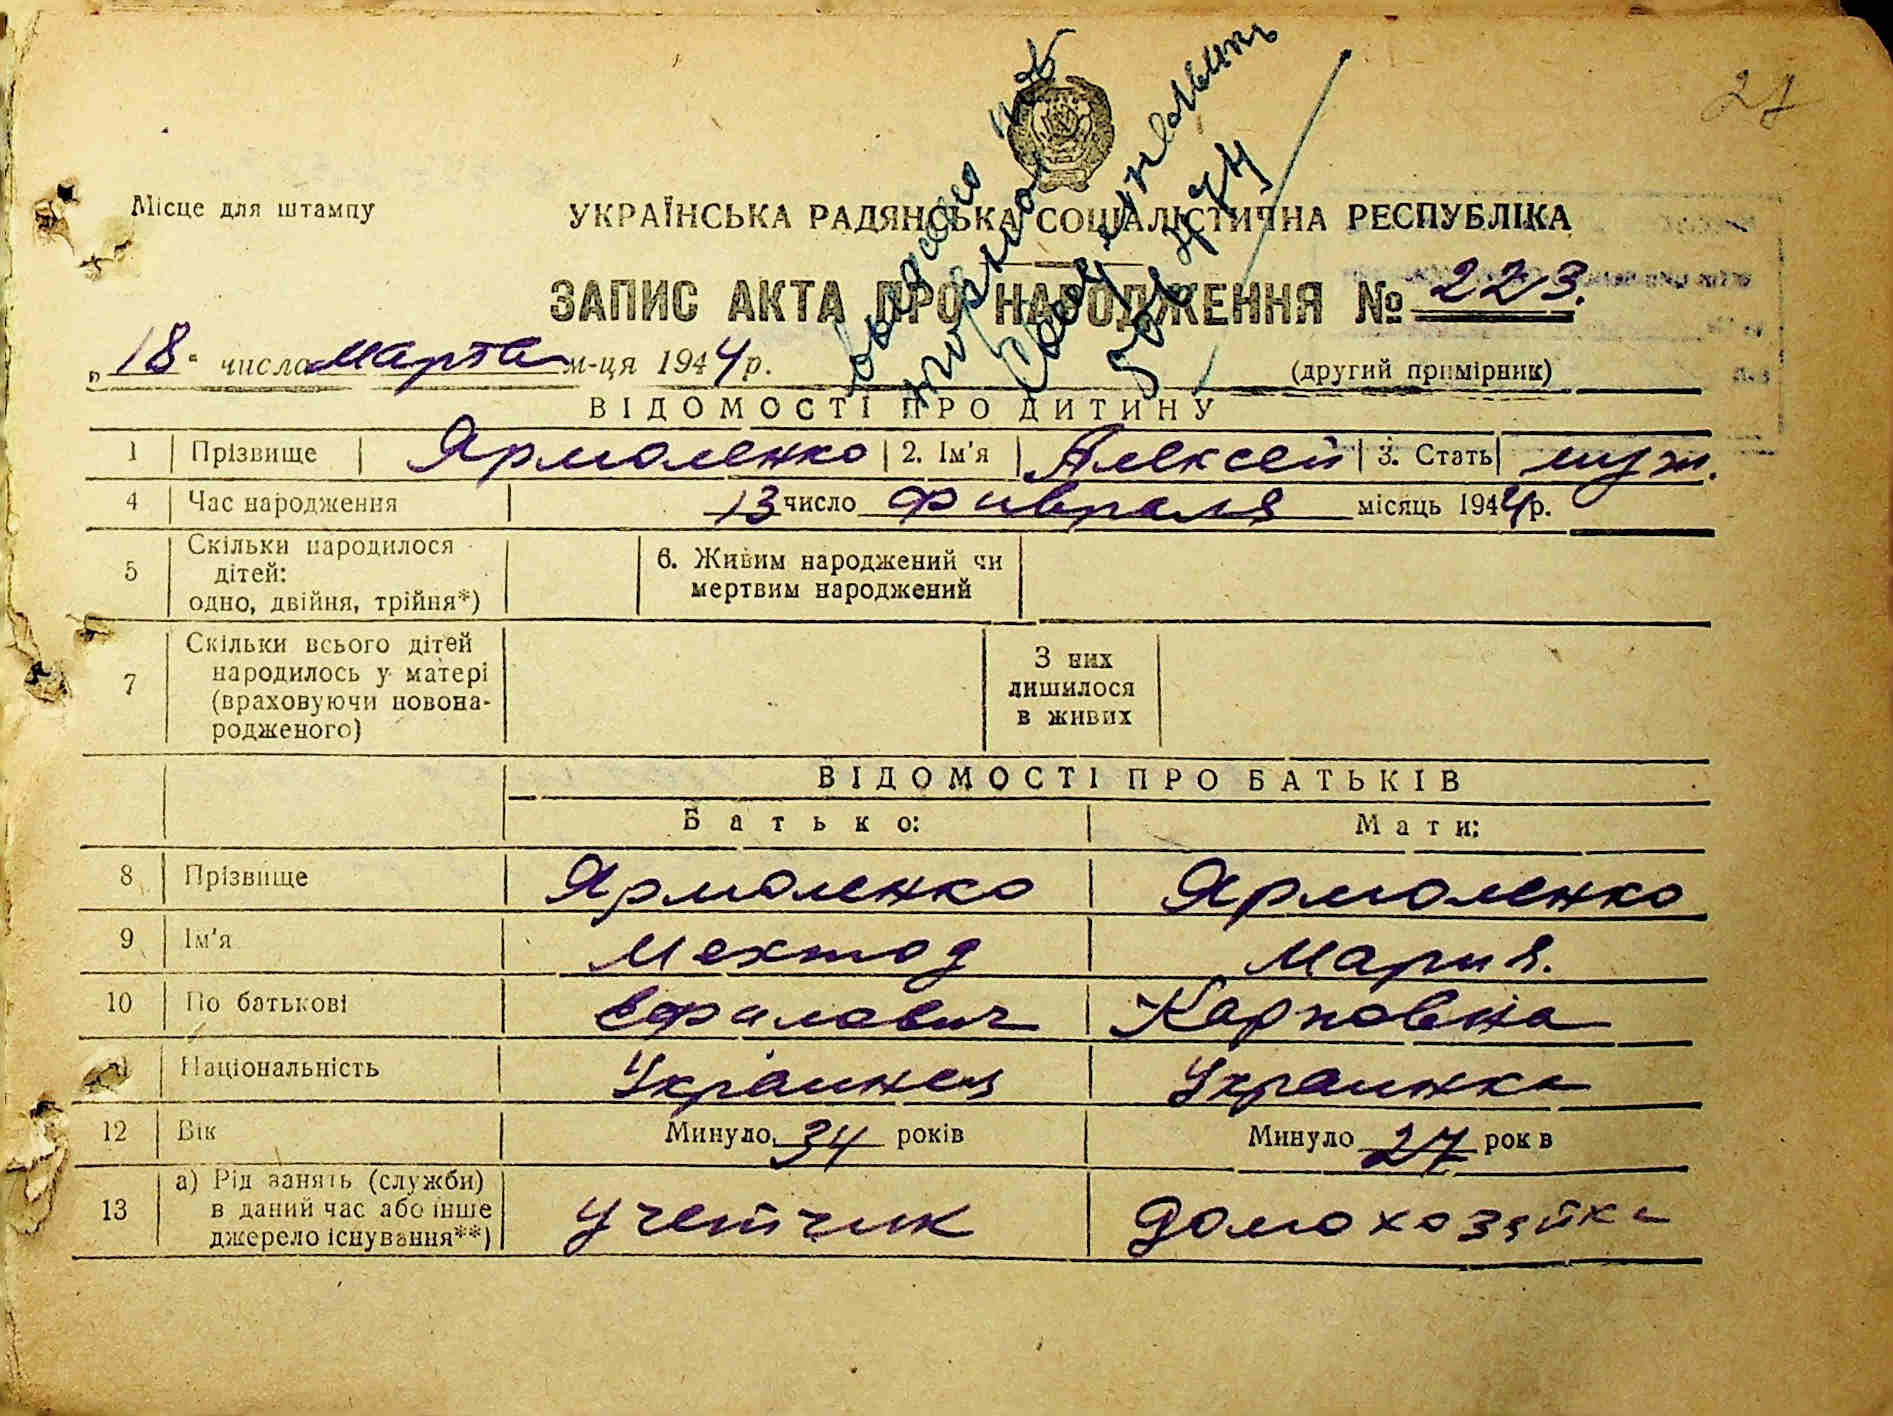 27
Місце для штампу
УКРАЇНСЬКА РАДЯНСЬКА СОЦІАЛІСТИЧНА РЕСПУБЛІКА
ЗАПИС АКТА ПРО НАРОДЖЕННЯ № 223.
„18" числа марта м-ця 1944 р.
(другий примірник)
ВІДОМОСТІ ПРО ДИТИНУ
1 Прізвище Ярмоленко 2. Ім'я Алексей 3. Стать муж.
4 Час народження 13 число февраля місяць 1944 р.
5 Скільки народилося
дітей:
одно, двійня, трійня*)
6. Живим народжений чи
мертвим народжений
7 Скільки всього дітей
народилось у матері
(враховуючи новона-
родженого)
З них
лишилося
в живих
ВІДОМОСТІ ПРО БАТЬКІВ
Батько: Мати:
8 Прізвище Ярмоленко Ярмоленко
9 Ім'я Мехтод Мария.
10 По батькові Карповна
11 Національність Украинец Украинка
12 Вік Минуло 34 років Минуло 27 рок в
13 а) Рід занять (служби)
в даний час або інше
джерело існування**)
учетчик домохозяйка